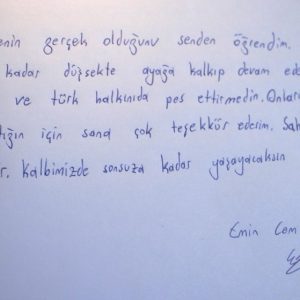 enin gerçek olduğunu senden öğrendim.
kadar düşsekte ayağa kalkıp devam ede
ve türk halkınıda pes ettirmedin. Onlara
tığın için sana çok teşekkür ederim. Sah
r. Kalbimizde sonsuza kadar yaşayacaksın
Emin Cem